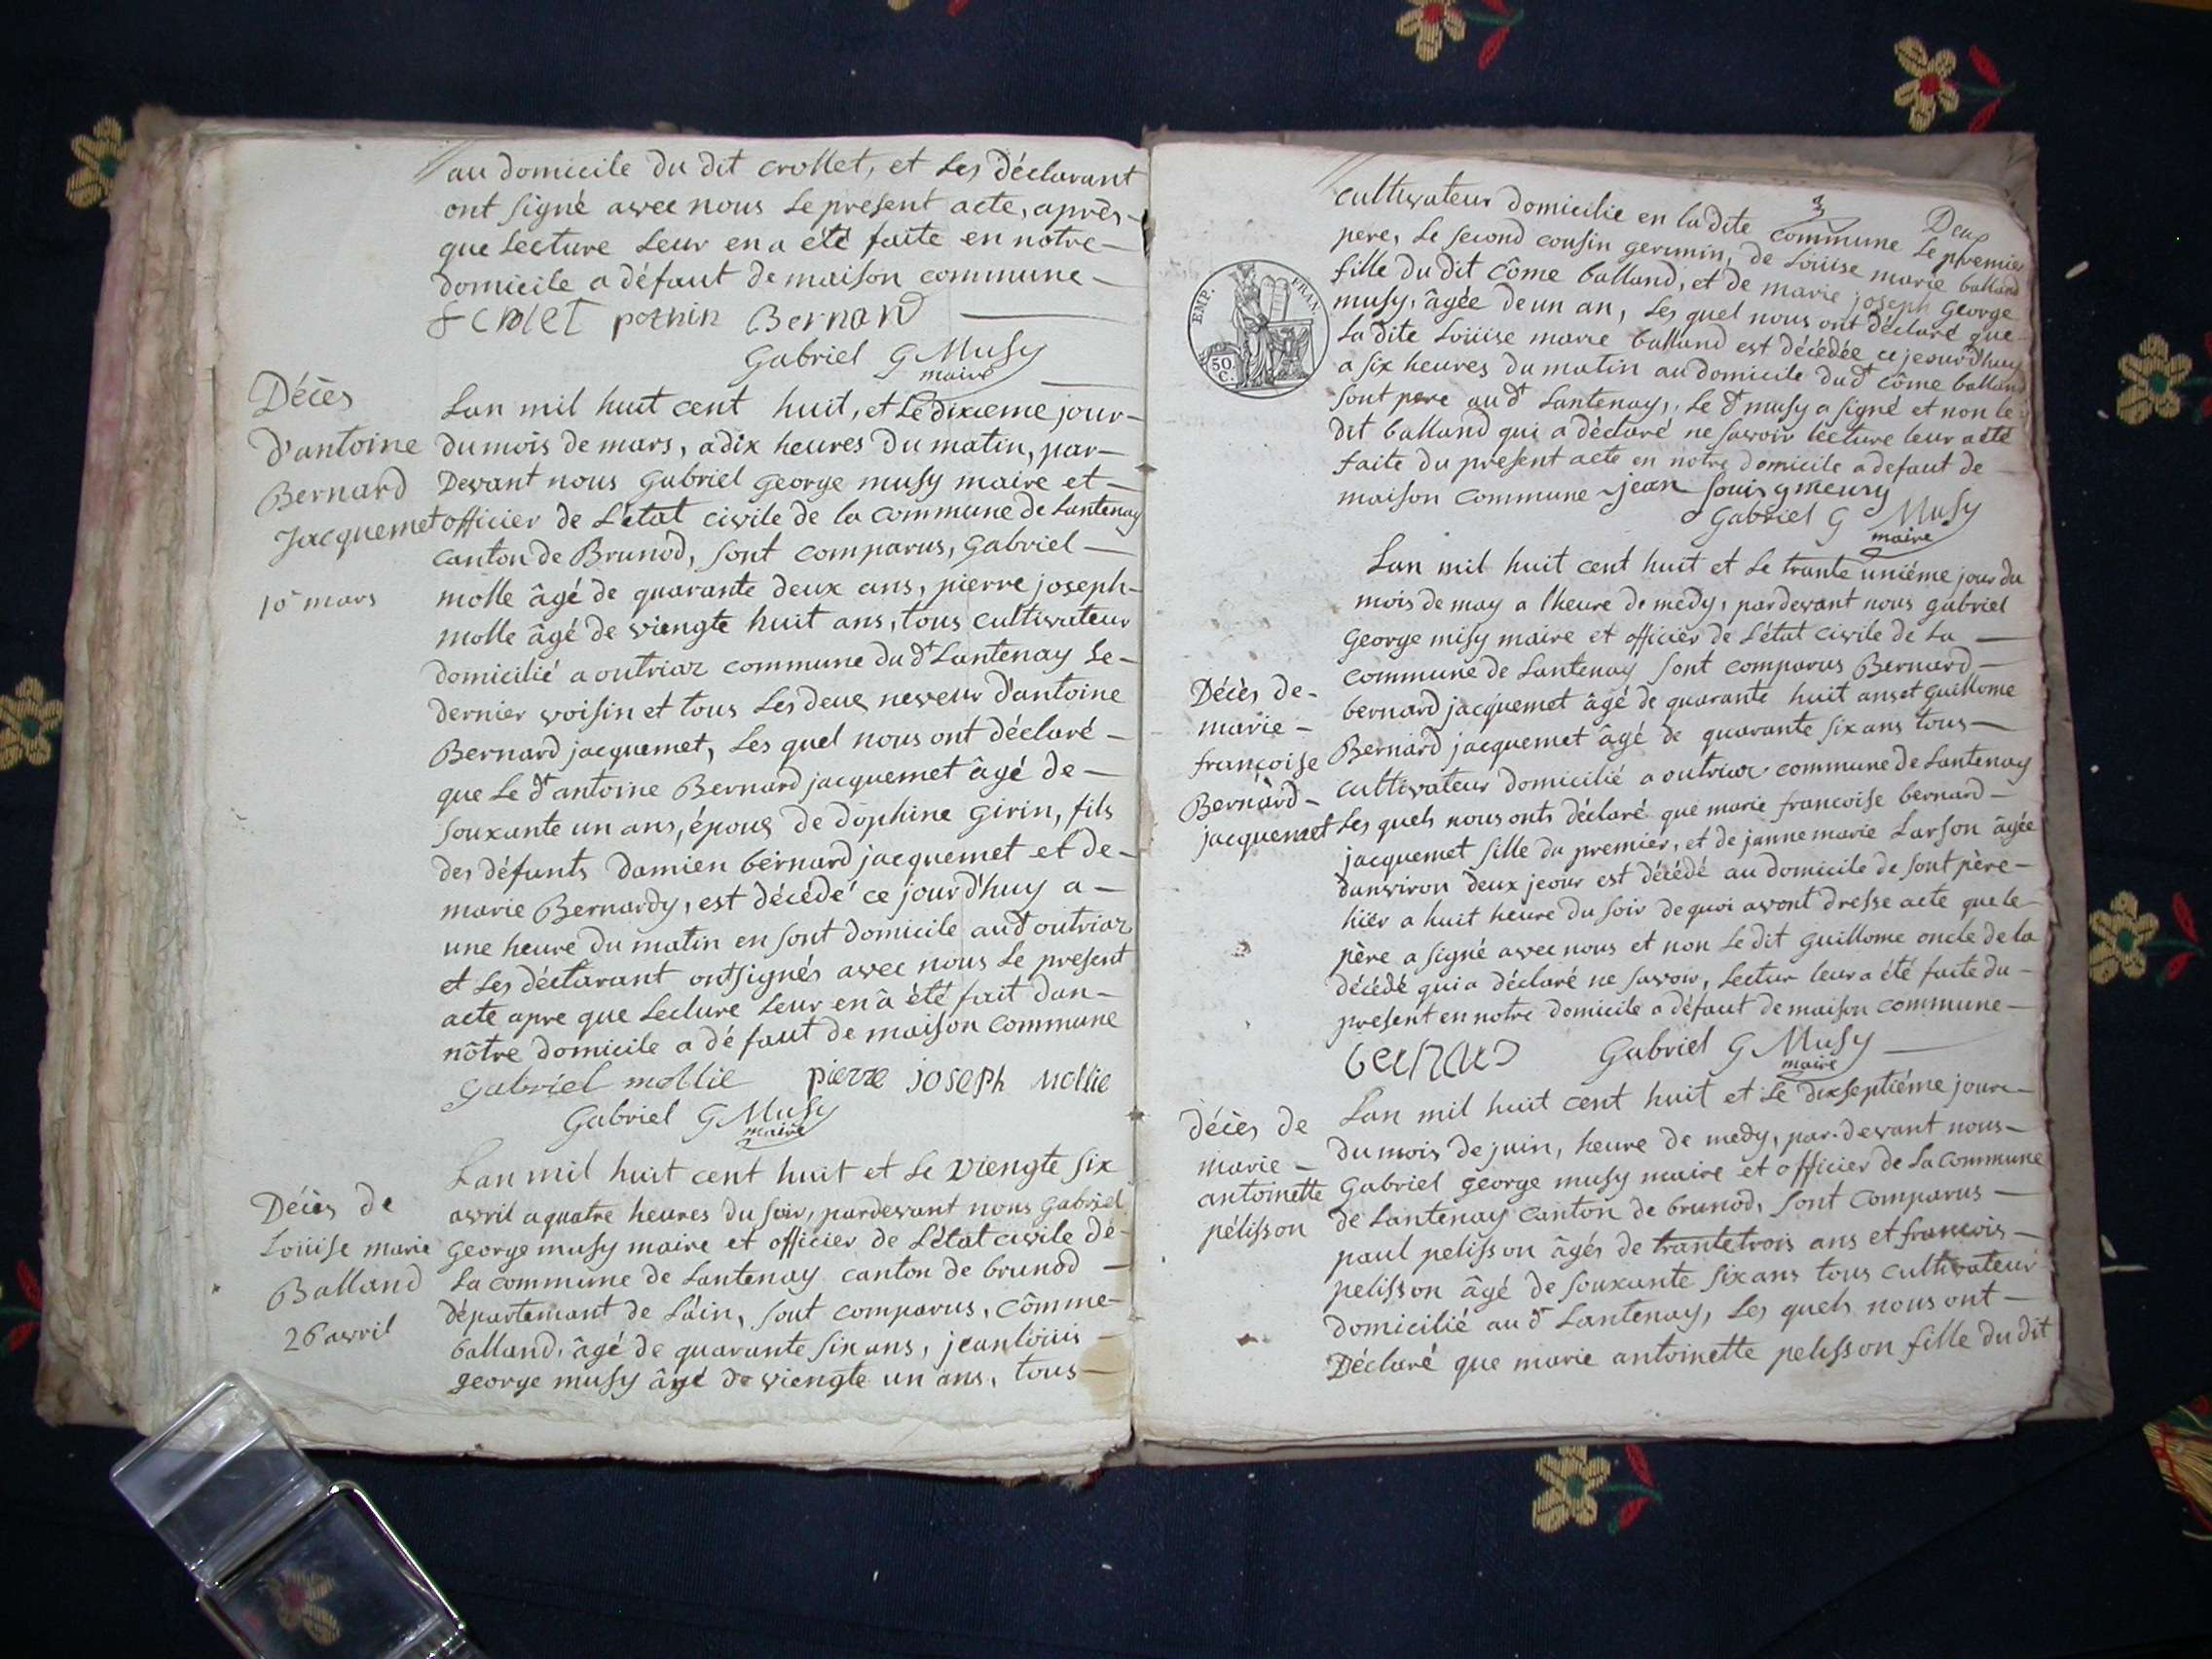 au domicile du dit crollet, et les déclarant
ont signé avec nous le present acte, après
que lecture leur en a été faite en notre
domicile a défaut de maison commune
pernin Bernard
Gabriel G Musy
maire
Décès
d'antoine
Bernard
Jacquemet
10 mars
Lan mil huit cent huit, et le dixieme jour
du mois de mars, a dix heures du matin, par
Devant nous Gabriel George musy maire et
officier de L'état civile de la commune de Lantenay
canton de Brunod, sont comparus, Gabriel
molle âgé de quarante deux ans, pierre joseph
molle âgé de viengte huit ans, tous cultivateur
domicilié a outriaz commune du dt Lantenay le
dernier voisin et tous les deux neveur d'antoine
Bernard jacquemet, les quel nous ont déclaré
que le dt antoine Bernard jacquemet âgé de
souxante un ans, époux de dophine Girin, fils
des défunts damien bernard jacquemet et de
marie Bernardy, est décédé ce jourd'huy a
une heure du matin en sont domicile au dt outriaz
et les déclarant ont signés avec nous le present
acte apre que lecture leur en â été fait dan
nôtre domicile a défaut de maison commune
Gabriel mollie pierre joseph mollie
Gabriel G Musy
maire
Décès de
Loüise marie
Balland
26 avril
Lan mil huit cent huit et le viengte six
avril a quatre heures du soir, pardevant nous Gabriel
George musy maire et officier de L'état civile de
La commune de Lantenay canton de brunod
département de Láin, sont comparus, Cômme
balland, âgé de quarante six ans, jean loüis
george musy âgé de viengte un ans, tous
cultivateur domicilié en la dite commune Le premier
Deux
pere, le second cousin germin, de Loüise marie balland
fille du dit Côme balland, et de marie joseph George
musy, âgée de un an, les quel nous ont déclaré que
La dite Loüise marie balland est décédée ce jeourd'huy
a six heures du matin au domicile du dt côme balland
sont pere au dt Lantenay, le dt musy a signé et non le
dit balland qui a déclaré ne savoir lecture leur a été
faite du present acte en notre domicile a defaut de
maison commune jean Louis gmeusy
Gabriel G Musy
maire
EMP. FRAN.
50 C.
Décès de
marie
françoise
Bernard
jacquemet
Lan mil huit cent huit et le trante uniéme jour du
mois de may a l'heure de medy, par devant nous gabriel
George misy maire et officier de L'état civile de La
commune de Lantenay sont comparus Bernard
bernard jacquemet âgé de quarante huit ans et Guillome
Bernard jacquemet âgé de quarante six ans tous
cultivateur domicilié a outriaz commune de Lantenay
Les quels nous onts déclaré que marie francoise bernard
jacquemet fille du premier, et de janne marie Larson âgée
danviron deux jeour est décédé au domicile de sont père
hier a huit heure du soir de quoi avont dresse acte que le
père a signé avec nous et non le dit Guillome oncle de la
décédé qui a déclaré ne savoir, lectur leur a été faite du
present en notre domicile a défaut de maison commune
bernard Gabriel G Musy
maire
décès de
marie
antoinette
pélisson
Lan mil huit cent huit et le dixseptiéme joure
du mois de juin, heure de medy, par-devant nous
Gabriel george musy maire et officier de La commune
de Lantenay canton de brunod, sont comparus
paul pelisson âgés de trantetrois ans et francois
pelisson âgé de souxante six ans tous cultivateur
domicilié au dt Lantenay, Les quels nous ont
Déclaré que marie antoinette pelisson fille du dit